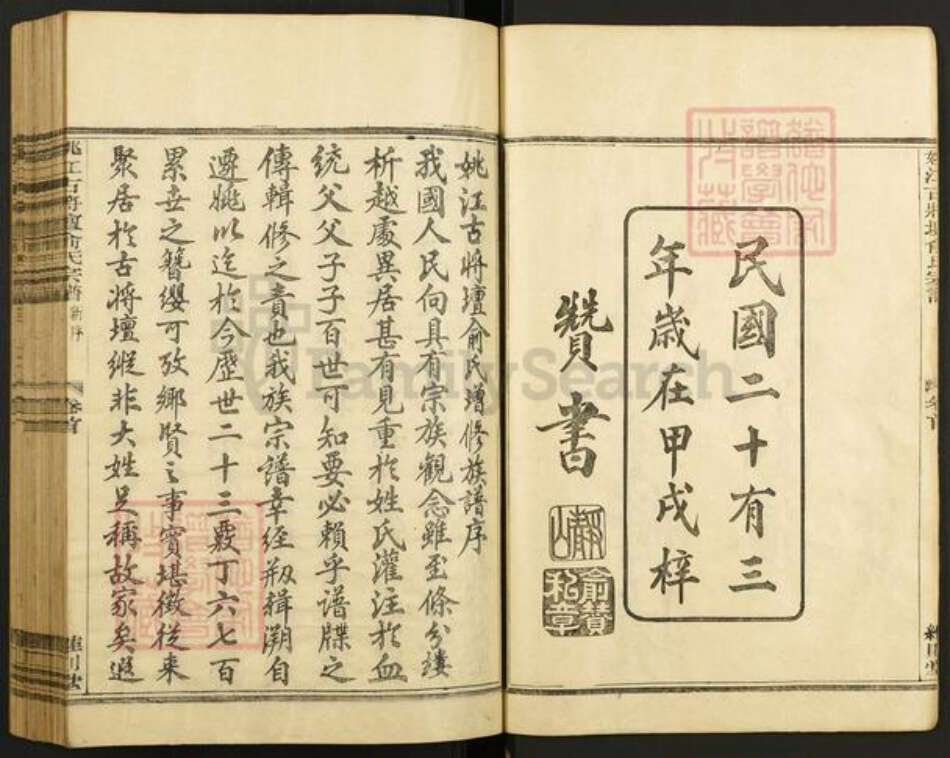 民國二十有三
年歲在甲戌梓
贊書
俞贊
私章
姚江古將壇俞氏增修族譜序
我國人民向具有宗族觀念雖至條分縷
析越處異居甚有見重於姓氏灌注於血
統父父子子百世可知要必賴乎譜牒之
傳輯修之責也我族宗譜幸經剏緝溯自
遷姚以迄於今歷世二十三覈丁六七百
累世之簪纓可攷鄉賢之事實堪徵從來
聚居於古將壇縱非大姓足稱故家矣遐
姚江古將壇俞氏宗譜
卷首
FamilySearch